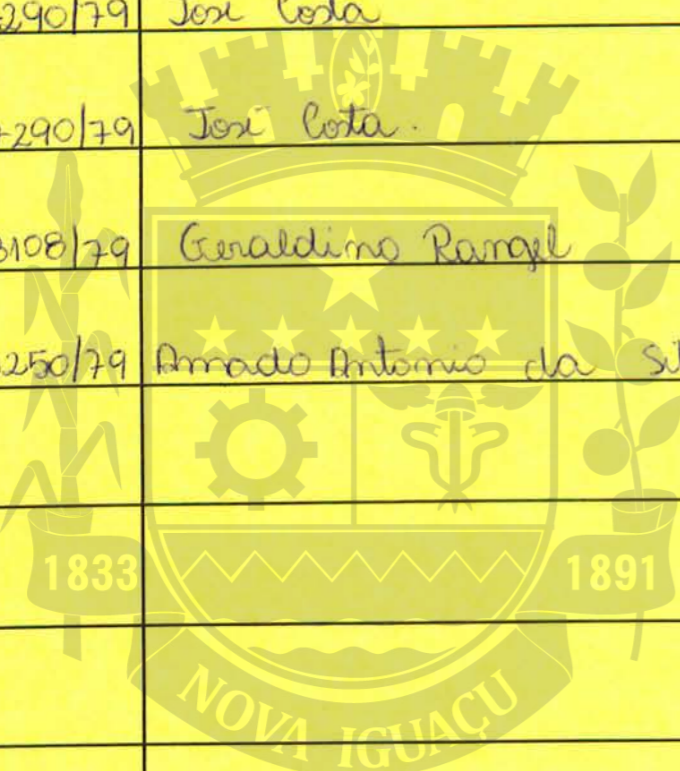 290/79 José Costa
290/79 José Costa.
3108/79 Geraldino Rangel
250/79 Amado Antonio da Sil
1833 1891
NOVA IGUAÇU